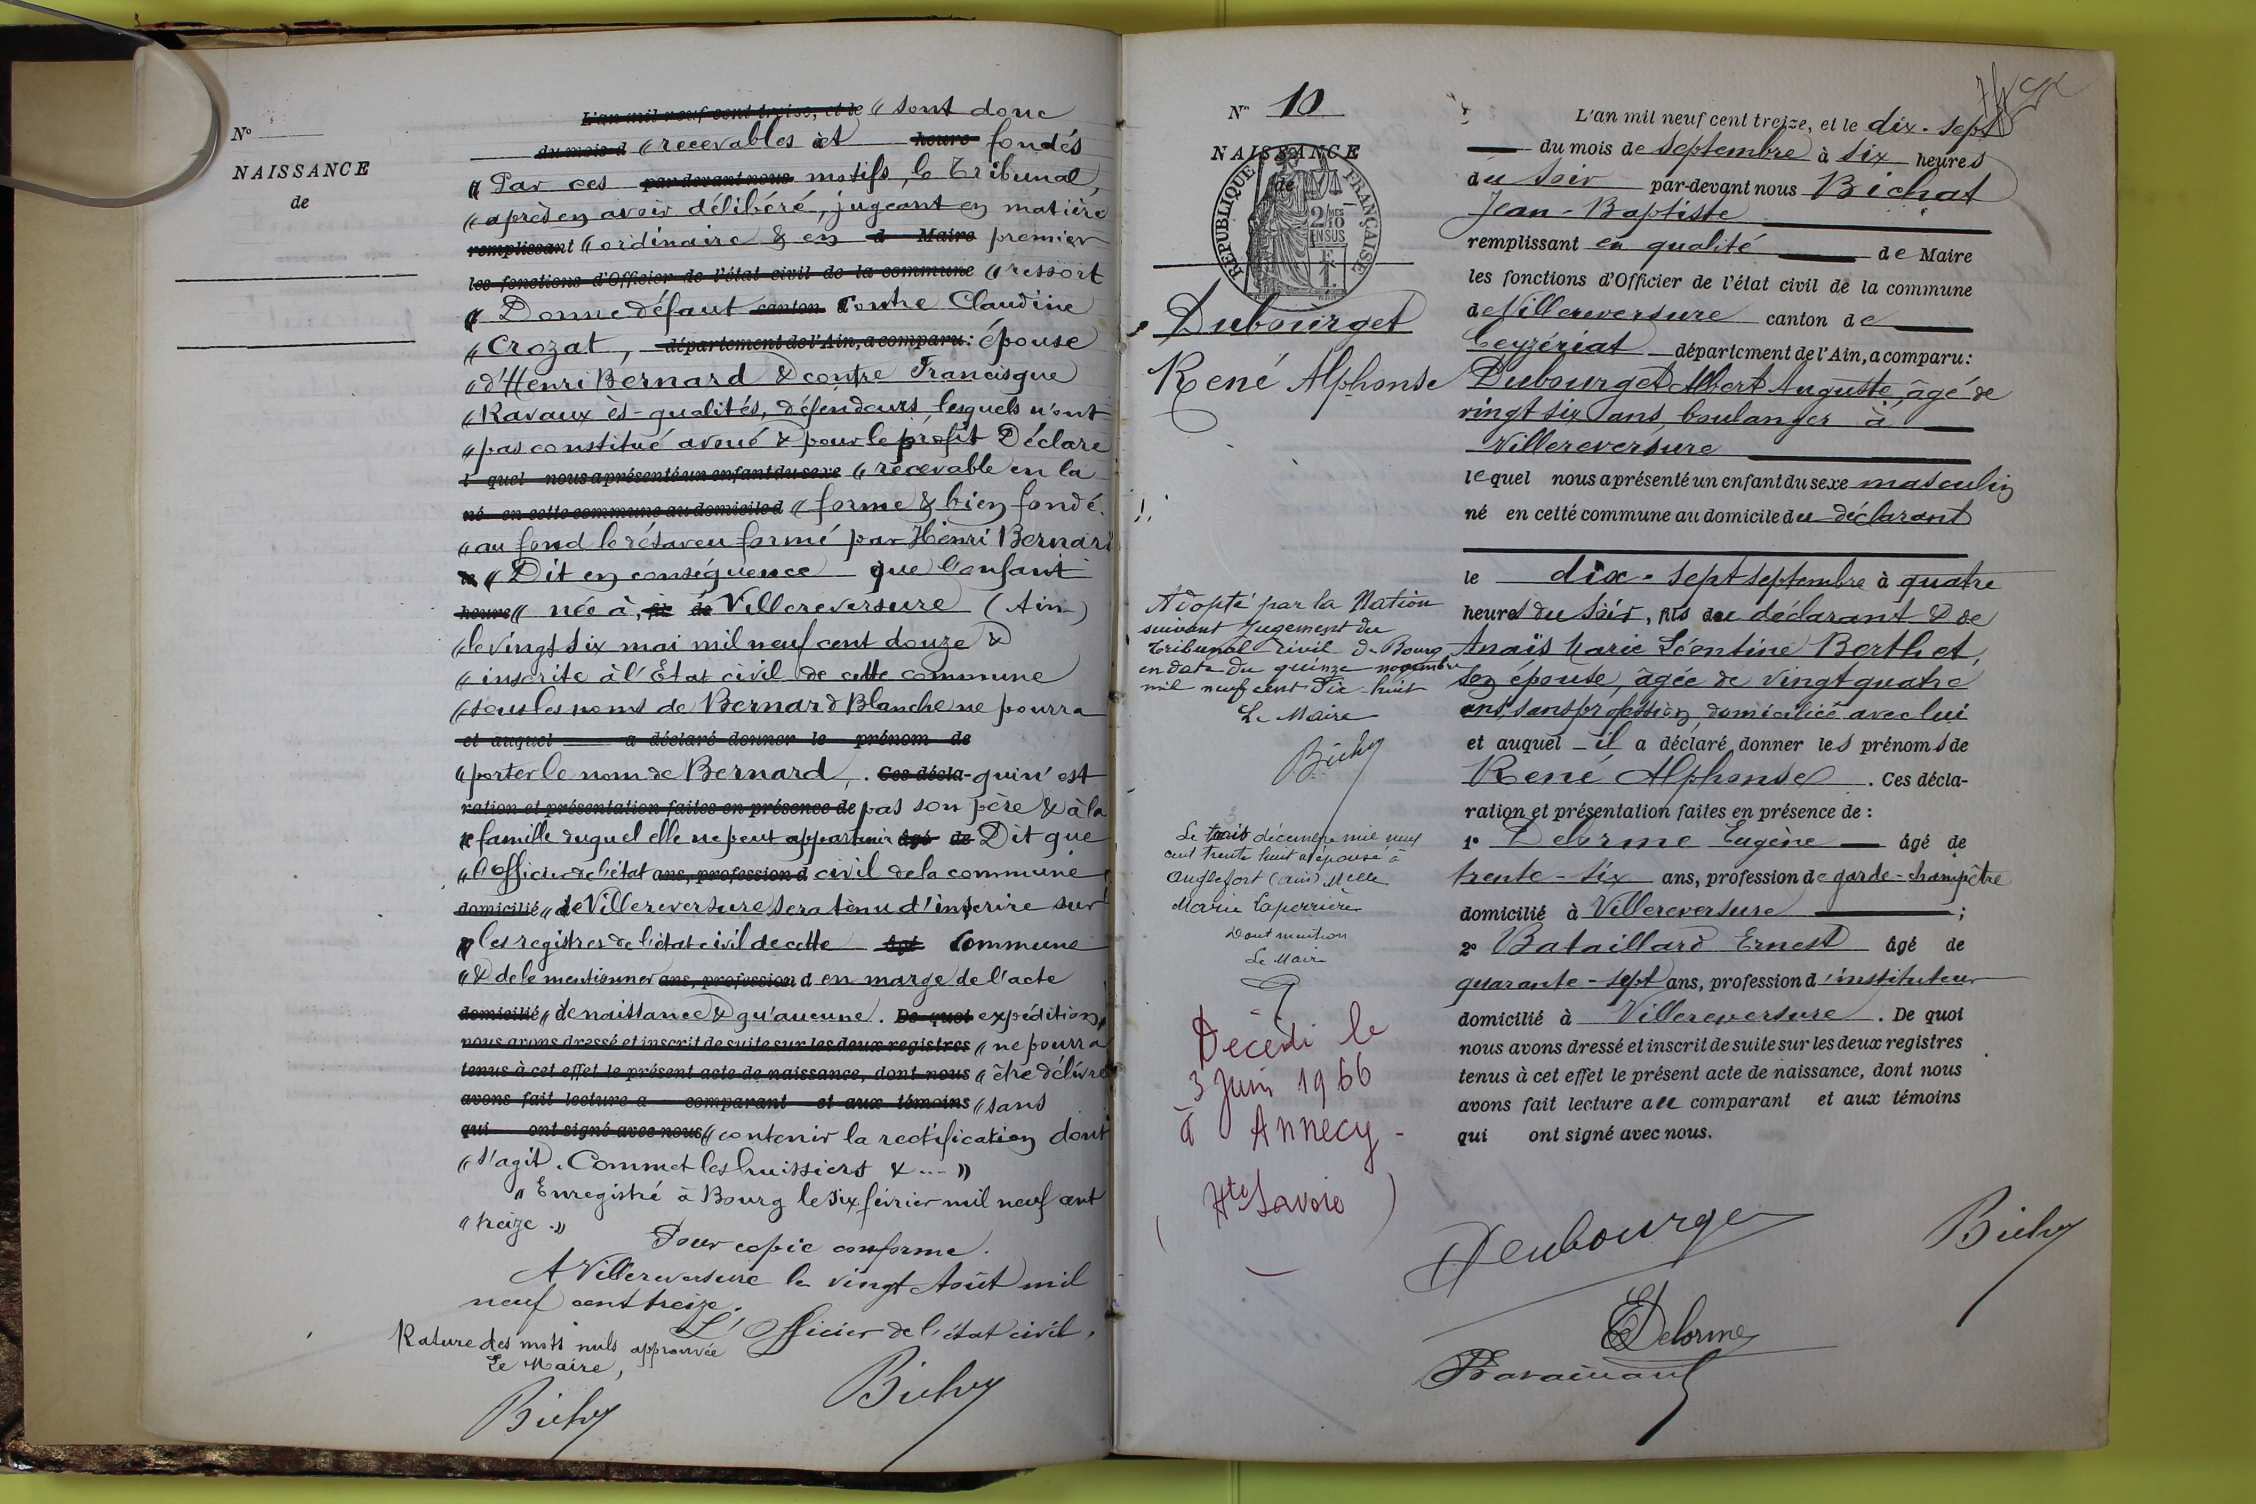 N°
NAISSANCE
de
L'an mil neuf cent treize, et le « sont donc
du mois d « recevables et heure fondés
« Par ces par-devant nous motifs, le Tribunal,
« après en avoir délibéré, jugeant en matière
remplissant « ordinaire & en d Maire premier
les fonctions d'Officier de l'état civil de la commune « ressort
« Donne défaut canton contre Claudine
« Crozat, département de l'Ain, a comparu: épouse
« d'Henri Bernard & contre Francisque
« Ravaux ès-qualités, défendeurs, lesquels n'ont
« pas constitué avoué & pour le profit Déclare
l quel nous a présenté un enfant du sexe « recevable en la
né en cette commune au domicile d « forme & bien fondé
« au fond le désaveu formé par Henri Bernard
le « Dit en conséquence que l'enfant
heure « née à, de Villereversure (Ain)
« le vingt six mai mil neuf cent douze &
« inscrite à l'Etat civil de cette commune
« sous les noms de Bernard Blanche ne pourra
et auquel a déclaré donner le prénom de
« porter le nom de Bernard, . Ces décla- qui n'est
ration et présentation faites en présence de pas son père & à la
« famille duquel elle ne peut appartenir âgé de Dit que
« l'officier de l'état ans, profession d civil de la commune
domicilié « de Villereversure sera tenu d'inscrire sur
« les registres de l'état civil de cette âgé commune
« & de le mentionner ans, profession d en marge de l'acte
domicilié « de naissance & qu'aucune . De quoi expédition
nous avons dressé et inscrit de suite sur les deux registres « ne pourra
tenus à cet effet le présent acte de naissance, dont nous « être délivrée
avons fait lecture a comparant et aux témoins « sans
qui ont signé avec nous « contenir la rectification dont
« s'agit. Commet les huissiers & ... »
« Enregistré à Bourg le six février mil neuf cent
« treize . »
Pour copie conforme.
A Villereversure le vingt Août mil
neuf cent treize.
L'Officier de l'état civil,
Rature des mots nuls approuvée
Le Maire,
N° 10
NAISSANCE
de
RÉPUBLIQUE FRANÇAISE
2/10 EN SUS
Dubourget
René Alphonse
Adopté par la Nation
suivant Jugement du
Tribunal civil de Bourg
en date du quinze novembre
mil neuf cent dix-huit
Le Maire
Le trois décembre mil neuf
cent trente huit a épousé à
Anglefort (Ain) Melle
Marie Laperrière
Dont mention
Le Maire
Décédé le
3 Juin 1966
à Annecy -
(Hte Savoie)
L'an mil neuf cent treize, et le dix-sept
du mois de septembre à six heures
du soir par-devant nous Bichat
Jean-Baptiste
remplissant en qualité de Maire
les fonctions d'Officier de l'état civil de la commune
de Villereversure canton de
Ceyzériat département de l'Ain, a comparu:
Dubourget Albert Auguste, âgé de
vingt six ans, boulanger à
Villereversure
lequel nous a présenté un enfant du sexe masculin
né en cette commune au domicile du déclarant
le dix-sept septembre à quatre
heures du soir, fils du déclarant & de
Anaïs Marie Léontine Berthet,
son épouse, âgée de vingt quatre
ans, sans profession, domiciliée avec lui
et auquel il a déclaré donner les prénoms de
René Alphonse . Ces décla-
ration et présentation faites en présence de :
1° Delorme Eugène âgé de
trente-six ans, profession de garde-champêtre
domicilié à Villereversure ;
2° Bataillard Ernest âgé de
quarante-sept ans, profession d'instituteur
domicilié à Villereversure . De quoi
nous avons dressé et inscrit de suite sur les deux registres
tenus à cet effet le présent acte de naissance, dont nous
avons fait lecture au comparant et aux témoins
qui ont signé avec nous.
Dubourget
EDelorme